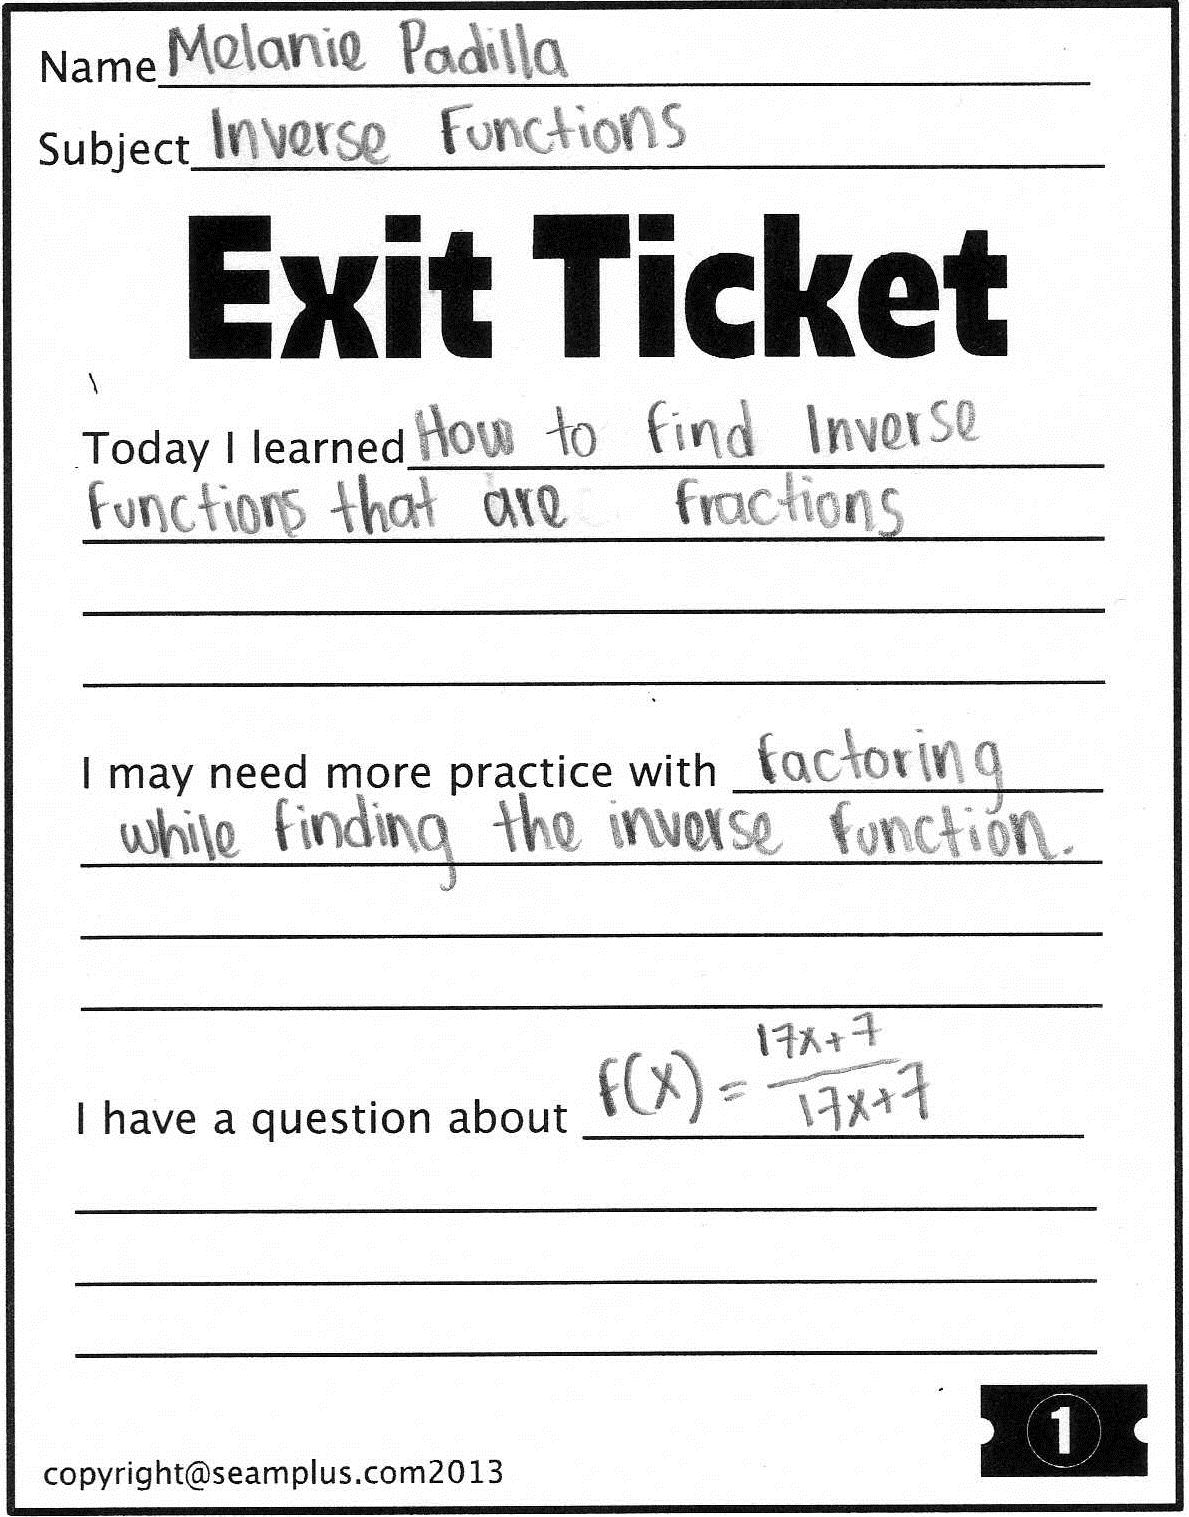 Name Melanie Padilla
Subject Inverse Functions
Exit Ticket
Today I learned How to find Inverse
functions that are fractions
I may need more practice with factoring
while finding the inverse function.
I have a question about f(x) = 17x+7 / 17x+7
1
copyright@seamplus.com2013